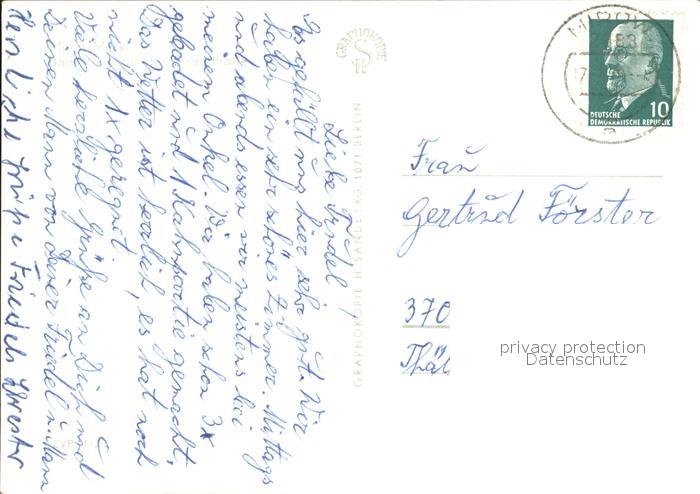 Liebe Trudel!
Es gefällt uns hier sehr gut. Wir
haben ein sehr schönes Zimmer. Mittags
und abends essen wir meistens bei
meinem Onkel. Wir haben schon 3x
gebadet und 1 Kahnpartie gemacht.
Das Wetter ist herrlich, es hat noch
nicht 1x geregnet.
Viele herzliche Grüße an Dich und
Deinen Mann von Deiner Friedel u. Mann
Herzliche Grüße
GRAPHOKOPIE
GRAPHOKOPIE H. SANDER KG. 1071 BERLIN
DEUTSCHE
DEMOKRATISCHE REPUBLIK
10
Frau
Gertrud Förster
370
Thäl
privacy protection
Datenschutz